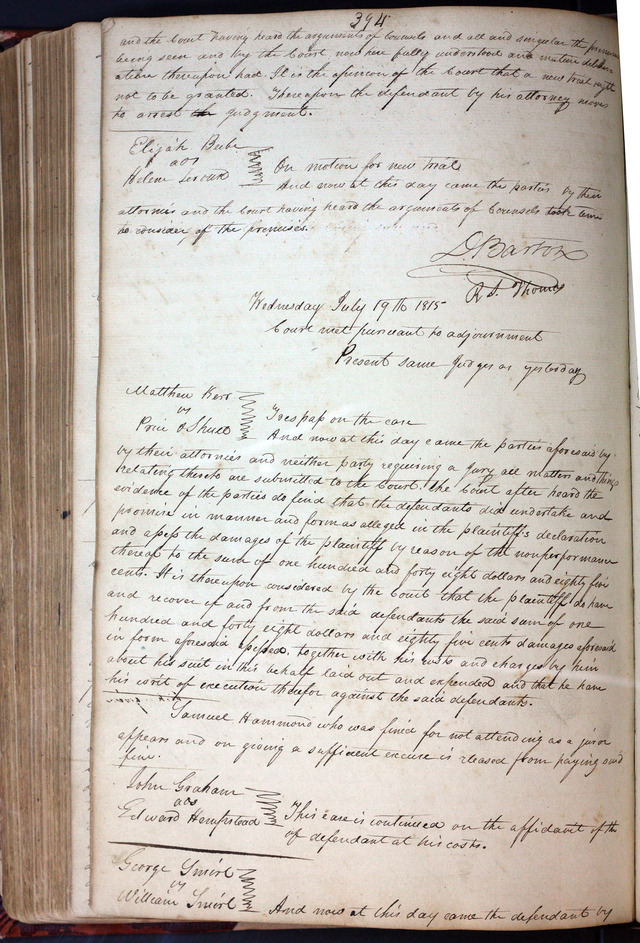 394
and the Court having heard the arguments of Counsels and all and singular the premises
being seen and by the Court now here fully understood and mature deliber
ation thereupon had It is the opinion of the Court that a new trial ought
not to be granted. Thereupon the defendant by his attorney moves
to arrest the judgment.
Elijah Beebe
ads
Helene Leroux
On motion for new trial
And now at this day came the parties by their
attornies and the Court having heard the arguments of Counsels took time
to consider of the premises.
D. Barton
R. S. Thomas
Wednesday July 19th 1815
Court met pursuant to adjournment
Present same Judges as yesterday
Matthew Kerr
vs
Price & Shute
Trespass on the case
And now at this day came the parties aforesaid by
by their attornies and neither party requiring a jury all matters and things
relating thereto are submitted to the Court. The Court after heard the
evidence of the parties do find that the defendants did undertake and
promise in manner and form as alleged in the plaintiff's declaration
and assess the damages of the plaintiff by reason of the nonperformance
thereof to the sum of one hundred and forty eight dollars and eighty five
cents. It is thereupon considered by the Court that the plaintiff do have
and recover of and from the said defendants the said sum of one
hundred and forty eight dollars and eighty five cents damages aforesaid
in form aforesaid assessed together with his costs and charges by him
about his suit in this behalf laid out and expended and that he have
his writ of execution therefor against the said defendants.
Samuel Hammond who was fined for not attending as a juror
appears and on giving a sufficient excuse is released from paying said
fine.
John Graham
ads
Edward Hempstead
This case is continued on the affidavit of the
of defendant at his costs.
George Smirl
vs
William Smirl
And now at this day came the defendant by